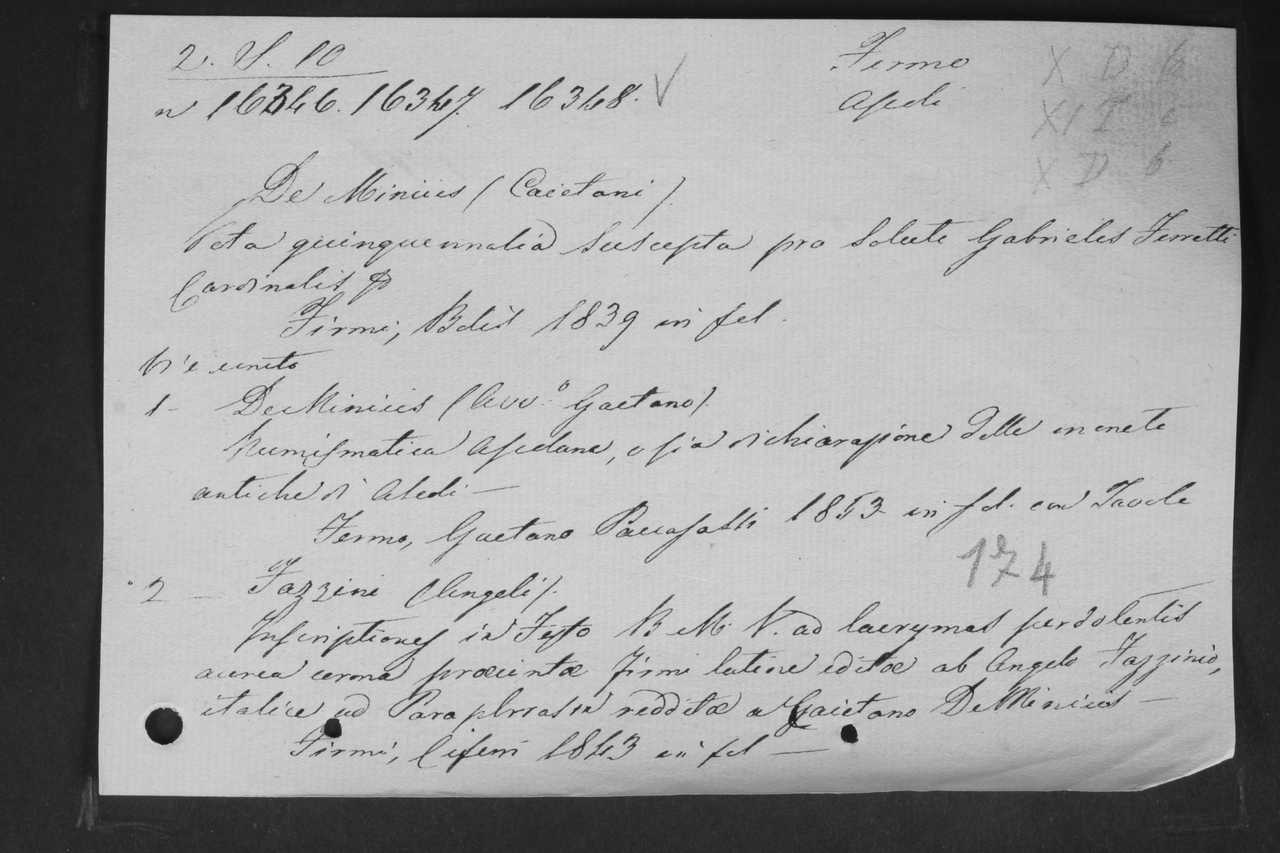 2. H. 10
Fermo
X D b
n 16346. 16347. 16348. V
Ascoli
XI I c
X D b
De Minicis (Caietani).
Vota quinquennalia suscepta pro salute Gabrielis Ferretti
Cardinalis &
Firmi, Bolis 1839 in fol.
V'è unito
1 - De Minicis (Avv.o Gaetano).
Numismatica Ascolana, o sia dichiarazione delle monete
antiche di Ascoli —
Fermo, Gaetano Paccasassi 1853 in fol. con Tavole
174
2 - Fazzini (Angeli).
Inscriptiones in Festo B. M. V. ad lacrymas perdolentis
aurea corona præcinctæ Firmi latine editæ ab Angelo Fazzinio,
italice ad Paraphrasin redditæ a Gaietano De Minicis —
Firmi, Ciferri 1843 in fol —